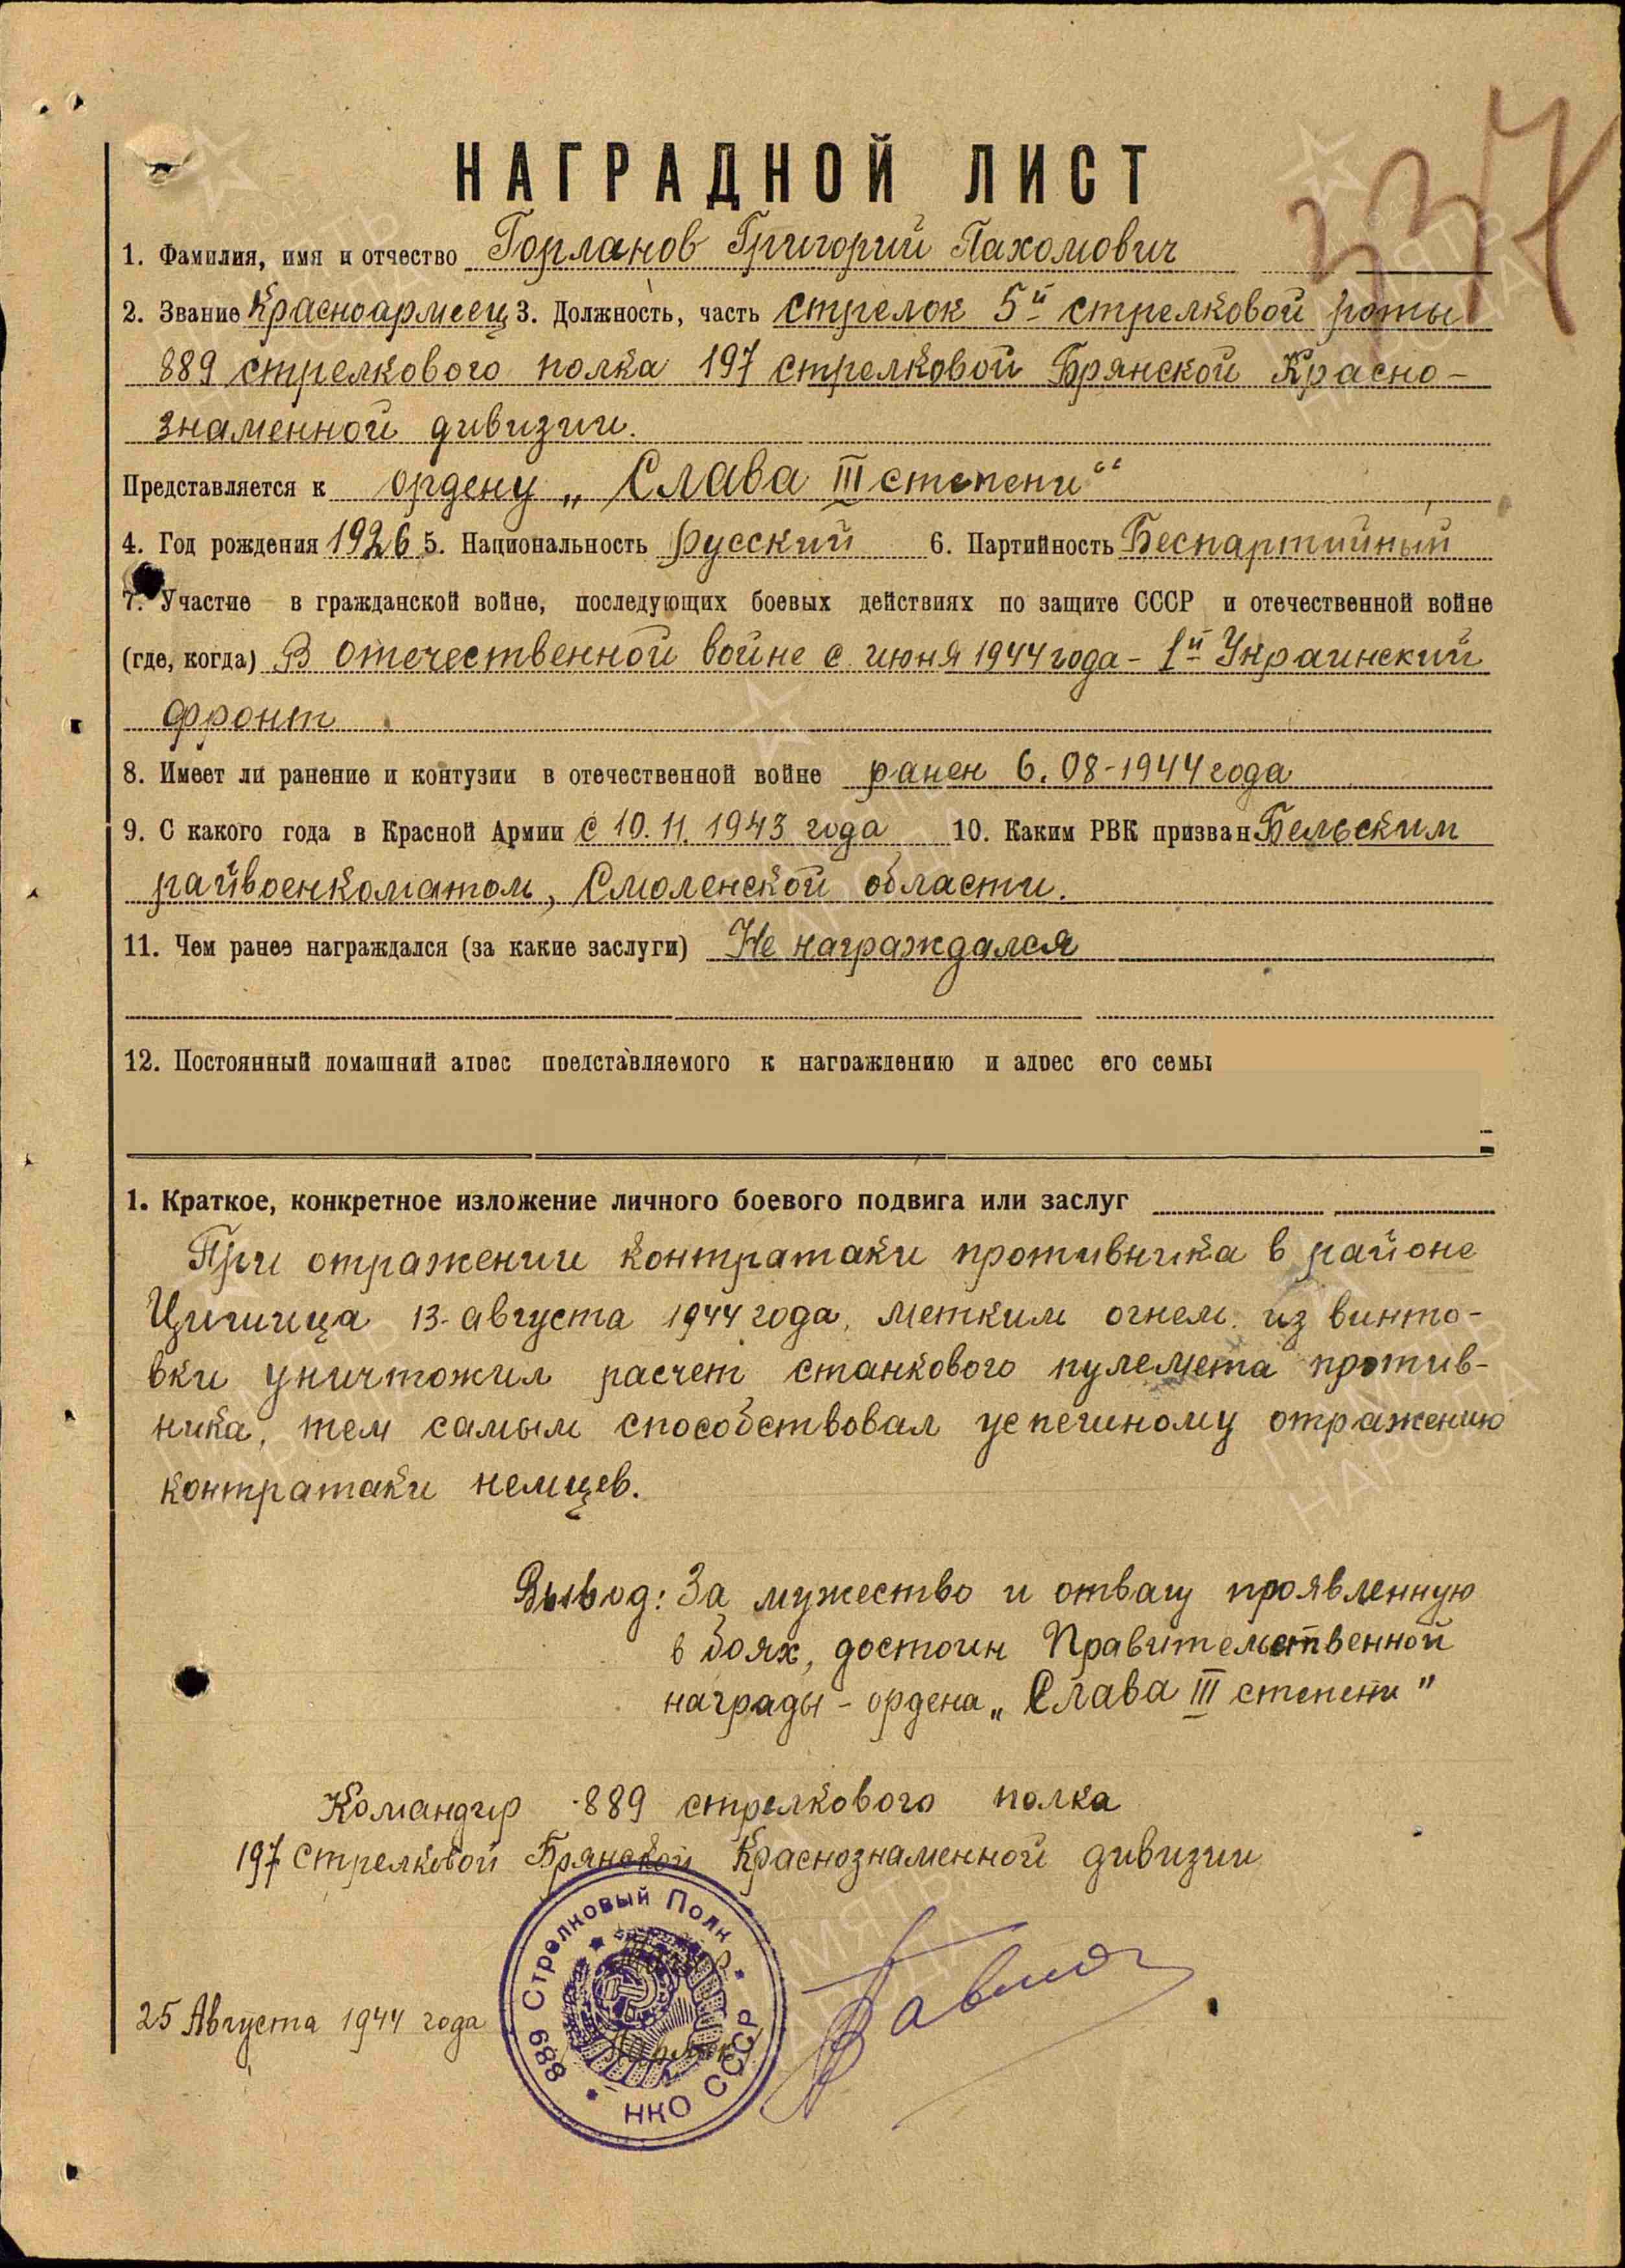 337
НАГРАДНОЙ ЛИСТ
1. Фамилия, имя и отчество Горланов Григорий Пахомович
2. Звание Красноармеец 3. Должность, часть стрелок 5й стрелковой роты
889 стрелкового полка 197 стрелковой Брянской Красно-
знаменной дивизии.
Представляется к ордену „Слава III степени"
4. Год рождения 1926 5. Национальность русский 6. Партийность Беспартийный
7. Участие в гражданской войне, последующих боевых действиях по защите СССР и отечественной войне
(где, когда) В отечественной войне с июня 1944 года - 1й Украинский
фронт
8. Имеет ли ранение и контузии в отечественной войне ранен 6.08-1944 года
9. С какого года в Красной Армии с 10.11.1943 года 10. Каким РВК призван Бельским
райвоенкоматом, Смоленской области.
11. Чем ранее награждался (за какие заслуги) Не награждался
12. Постоянный домашний адрес представляемого к награждению и адрес его семьи
1. Краткое, конкретное изложение личного боевого подвига или заслуг
При отражении контратаки противника в районе
13 августа 1944 года, метким огнем из винто-
вки уничтожил расчет станкового пулемета против-
ника, тем самым способствовал успешному отражению
контратаки немцев.
Вывод: За мужество и отвагу проявленную
в боях, достоин Правительственной
награды - ордена „Слава III степени"
Командир 889 стрелкового полка
197 Стрелковой Брянской Краснознаменной дивизии
889 Стрелковый Полк
НКО СССР
25 Августа 1944 года
ПАМЯТЬ НАРОДА